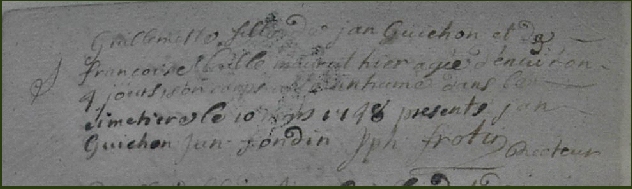 Guillemette fille de jan Guichon et de
francoise mourut hier agée d'environ
4 jours son corps inhumé dans le
cimetiere le 10 1748 presents jan
Guichon jan fondin Jph frotin Recteur